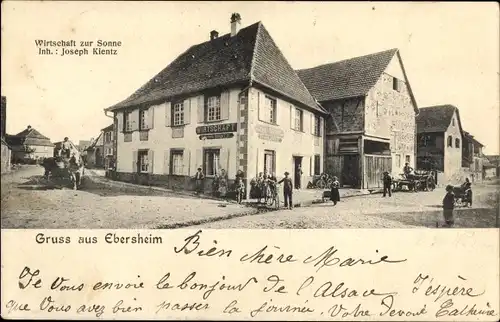 Wirtschaft zur Sonne
Inh. : Joseph Kientz
WIRTSCHAFT
Gruss aus Ebersheim
Bien chère Marie
Je Vous envoie le bonjour de l'Alsace J'éspère
que Vous avez bien passer la journée. Votre Devoué Catherine